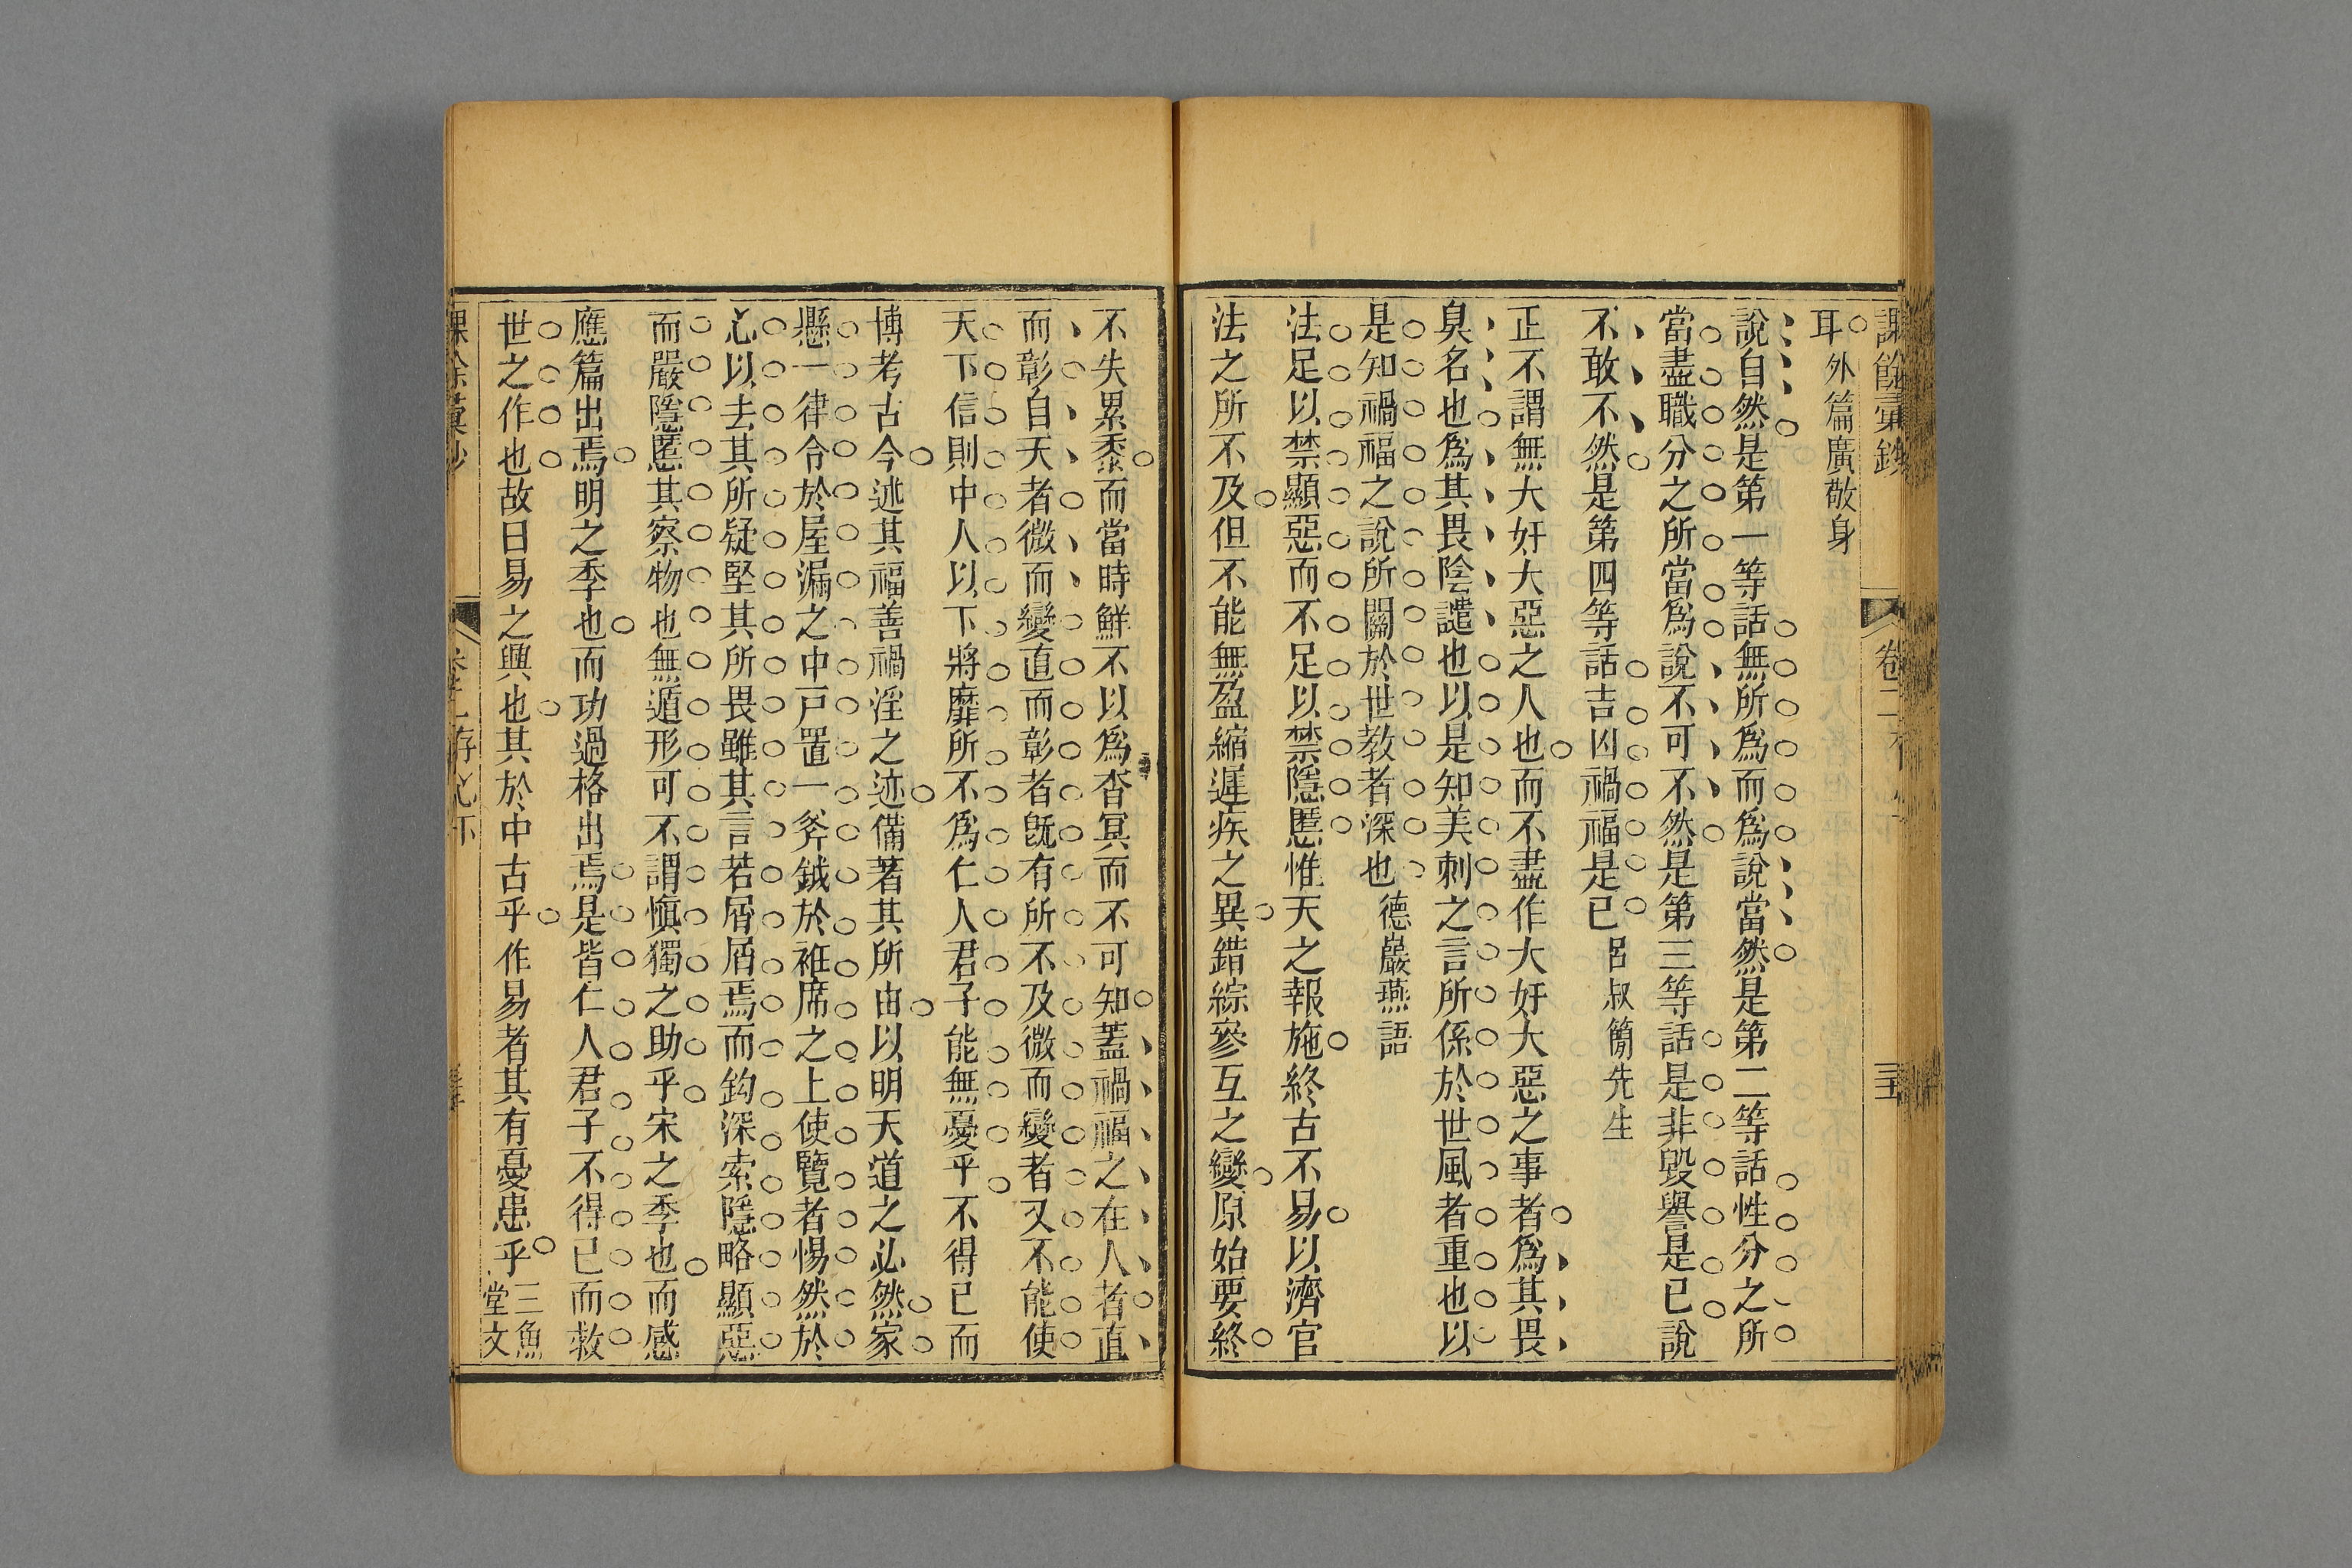 課餘彙鈔
卷二
耳 外篇廣敬身
說自然是第一等話無所爲而爲說當然是第二等話性分之所
當盡職分之所當爲說不可不然是第三等話是非毀譽是已說
不敢不然是第四等話吉凶禍福是已 呂叔簡先生
正不謂無大奸大惡之人也而不盡作大奸大惡之事者爲其畏
臭名也爲其畏陰譴也以是知美刺之言所係於世風者重也以
是知禍福之說所關於世教者深也 德巖燕語
法足以禁顯惡而不足以禁隱慝惟天之報施終古不易以濟官
法之所不及但不能無盈縮遲疾之異錯綜參互之變原始要終
不失累黍而當時鮮不以爲杳冥而不可知蓋禍福之在人者直
而彰自天者微而變直而彰者旣有所不及微而變者又不能使
天下信則中人以下將靡所不爲仁人君子能無憂乎不得已而
博考古今述其福善禍淫之迹備著其所由以明天道之必然家
懸一律令於屋漏之中戸置一斧鉞於袵席之上使覽者惕然於
心以去其所疑堅其所畏雖其言若屑屑焉而鈎深索隱略顯惡
而嚴隱慝其察物也無遁形可不謂愼獨之助乎宋之季也而感
應篇出焉明之季也而功過格出焉是皆仁人君子不得已而救
世之作也故曰易之興也其於中古乎作易者其有憂患乎 三魚
堂文